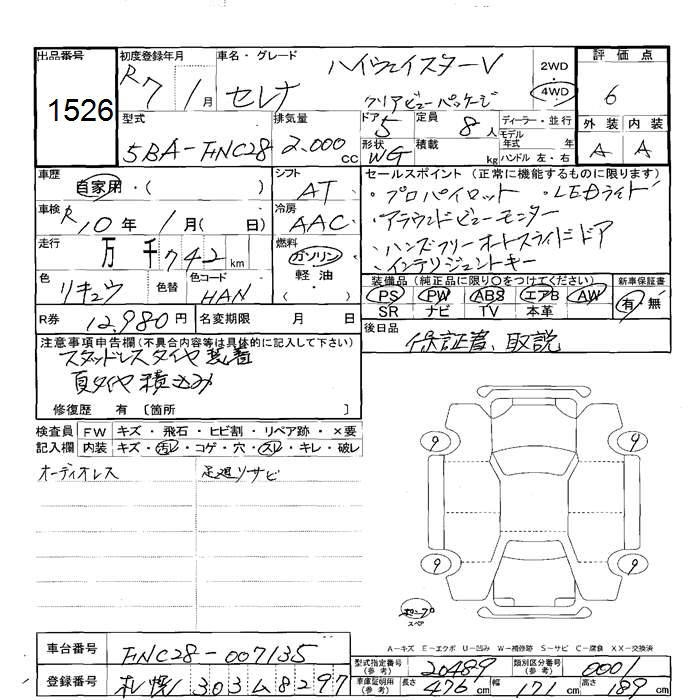 出品番号 初度登録年月 車名・グレード 評価点
1526 R7 1月 セレナ ハイウェイスターV 2WD 4WD 6
クリアビューパッケージ
型式 排気量 ドア 定員 ディーラー・並行 外装 内装
5BA-FNC28 2,000cc 5 8人 モデル年式 年 A A
形状 WG 積載 kg ハンドル 左・右
車歴 自家用・( ) シフト AT セールスポイント(正常に機能するものに限ります)
・プロパイロット ・LEDライト
車検 R10年 1月( 日) 冷房 AAC ・アラウンドビューモニター
走行 万千742km 燃料 ガソリン 軽油・( ) ・ハンズフリーオートスライドドア
・インテリジェントキー
色 リキュウ 色替 色コード HAN 装備品(純正品に限り○をつけてください) 新車保証書
PS PW ABS エアB AW 有・無
SR ナビ TV 本革
R券 12,980円 名変期限 月 日 後日品 保証書、取説
注意事項申告欄(不具合内容等は具体的に記入して下さい)
スタッドレスタイヤ装着
夏タイヤ積込み
修復歴 有〔箇所 〕
検査員記入欄 FW キズ・飛石・ヒビ割・リペア跡・×要
内装 キズ・汚レ・コゲ・穴・スレ・キレ・破レ
オーディオレス 足廻りサビ
9 9
9 9
スペア
A-キズ E-エクボ U-凹み W-補修跡 S-サビ C-腐食 XX-交換済
車台番号 FNC28-007135 型式指定番号(参考) 20489 類別区分番号(参考) 0001
登録番号 札幌 303 ム 8297 車庫証明用(参考) 長さ 476cm 幅 171cm 高さ 189cm